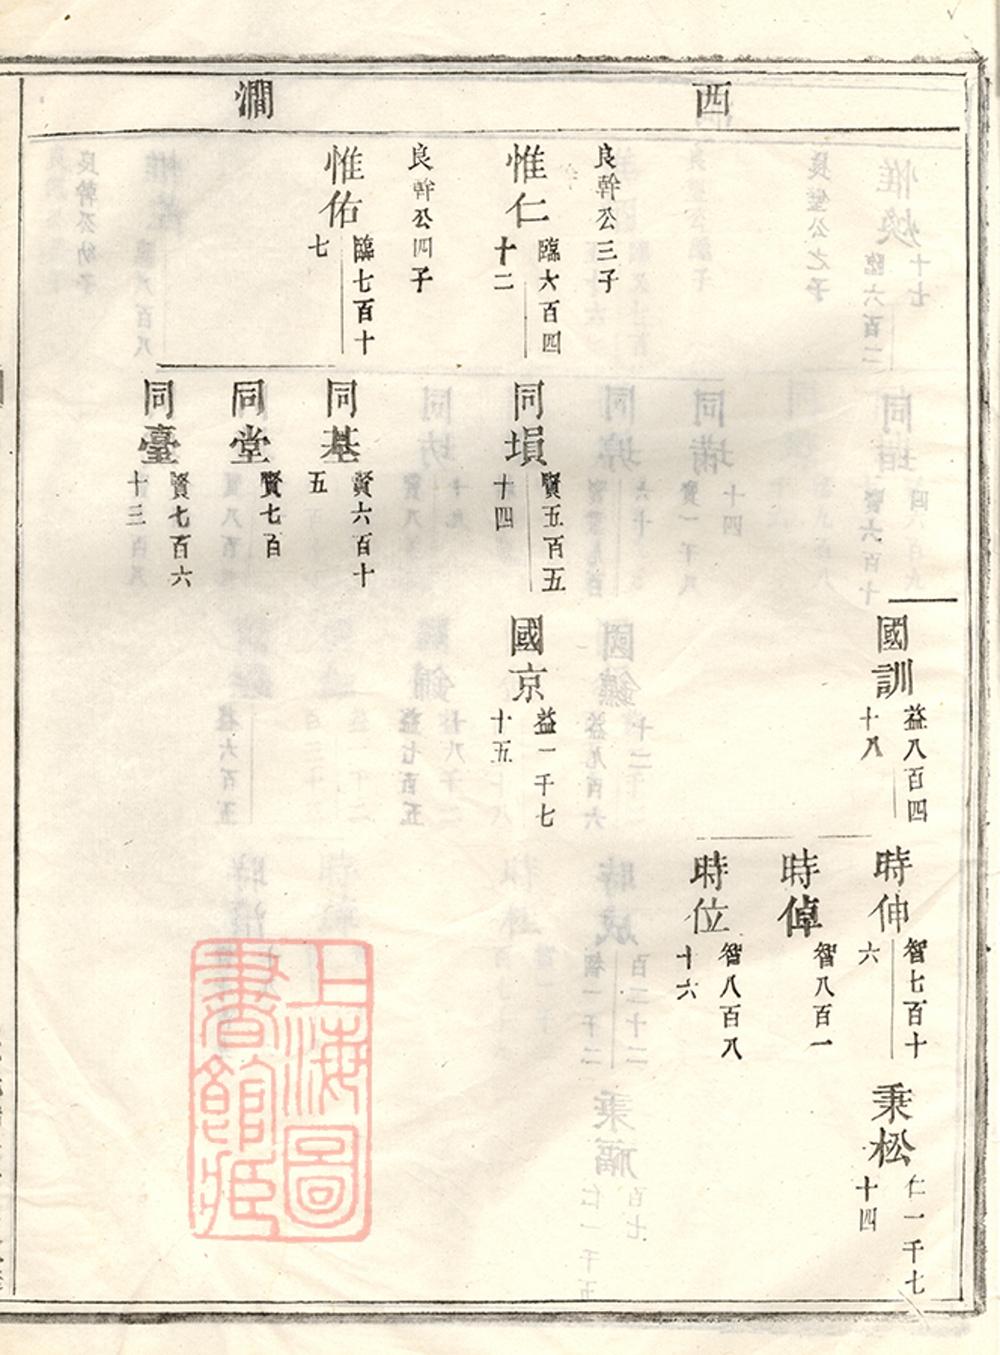 西澗
國訓
益八百四
十八
時伸
智七百十
六
秉松
仁一千七
十四
時倬
智八百一
時位
智八百八
十六
良幹公三子
惟仁
臨六百四
十二
同塤
賢五百五
十四
國京
益一千七
十五
良幹公四子
惟佑
臨七百十
七
同基
賢六百十
五
同堂
賢七百
同臺
賢七百六
十三
上海圖
書館藏